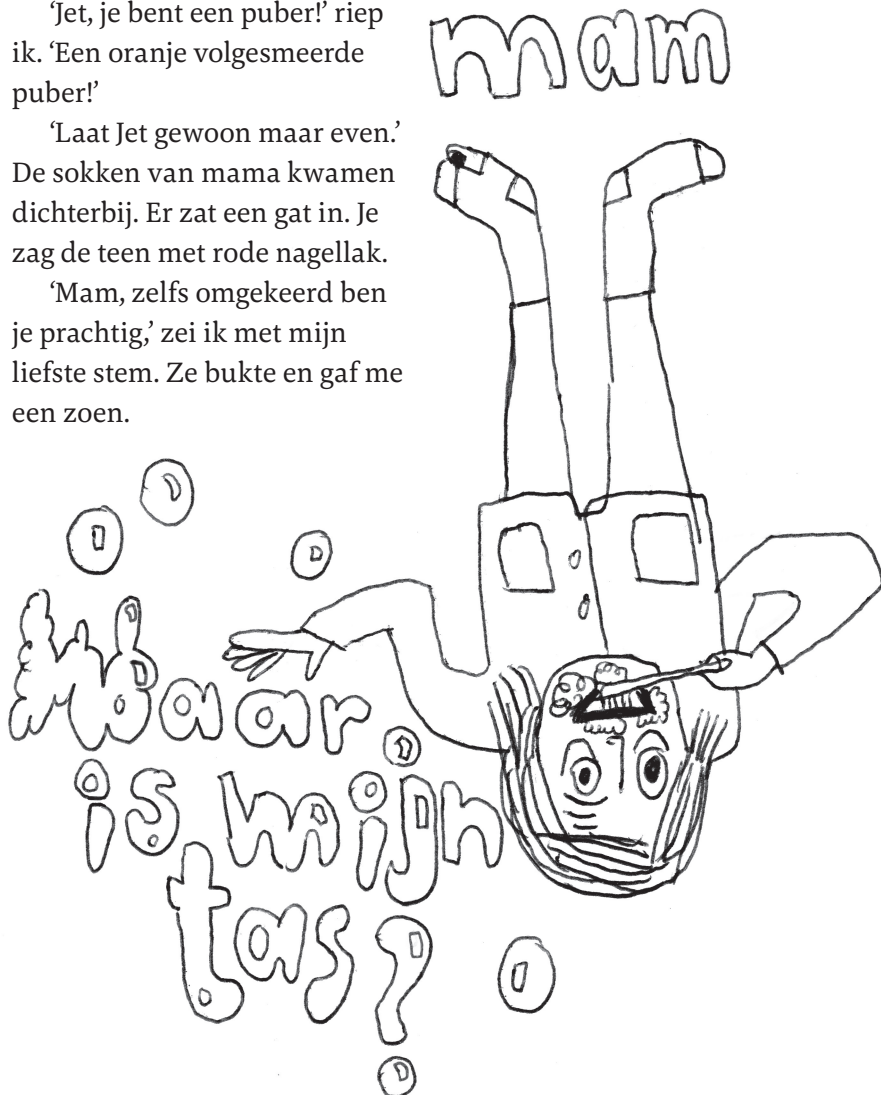 ‘Jet, je bent een puber!’ riep
ik. ‘Een oranje volgesmeerde
puber!’
‘Laat Jet gewoon maar even.’
De sokken van mama kwamen
dichterbij. Er zat een gat in. Je
zag de teen met rode nagellak.
‘Mam, zelfs omgekeerd ben
je prachtig,’ zei ik met mijn
liefste stem. Ze bukte en gaf me
een zoen.
mam
Waar
is mijn
tas?